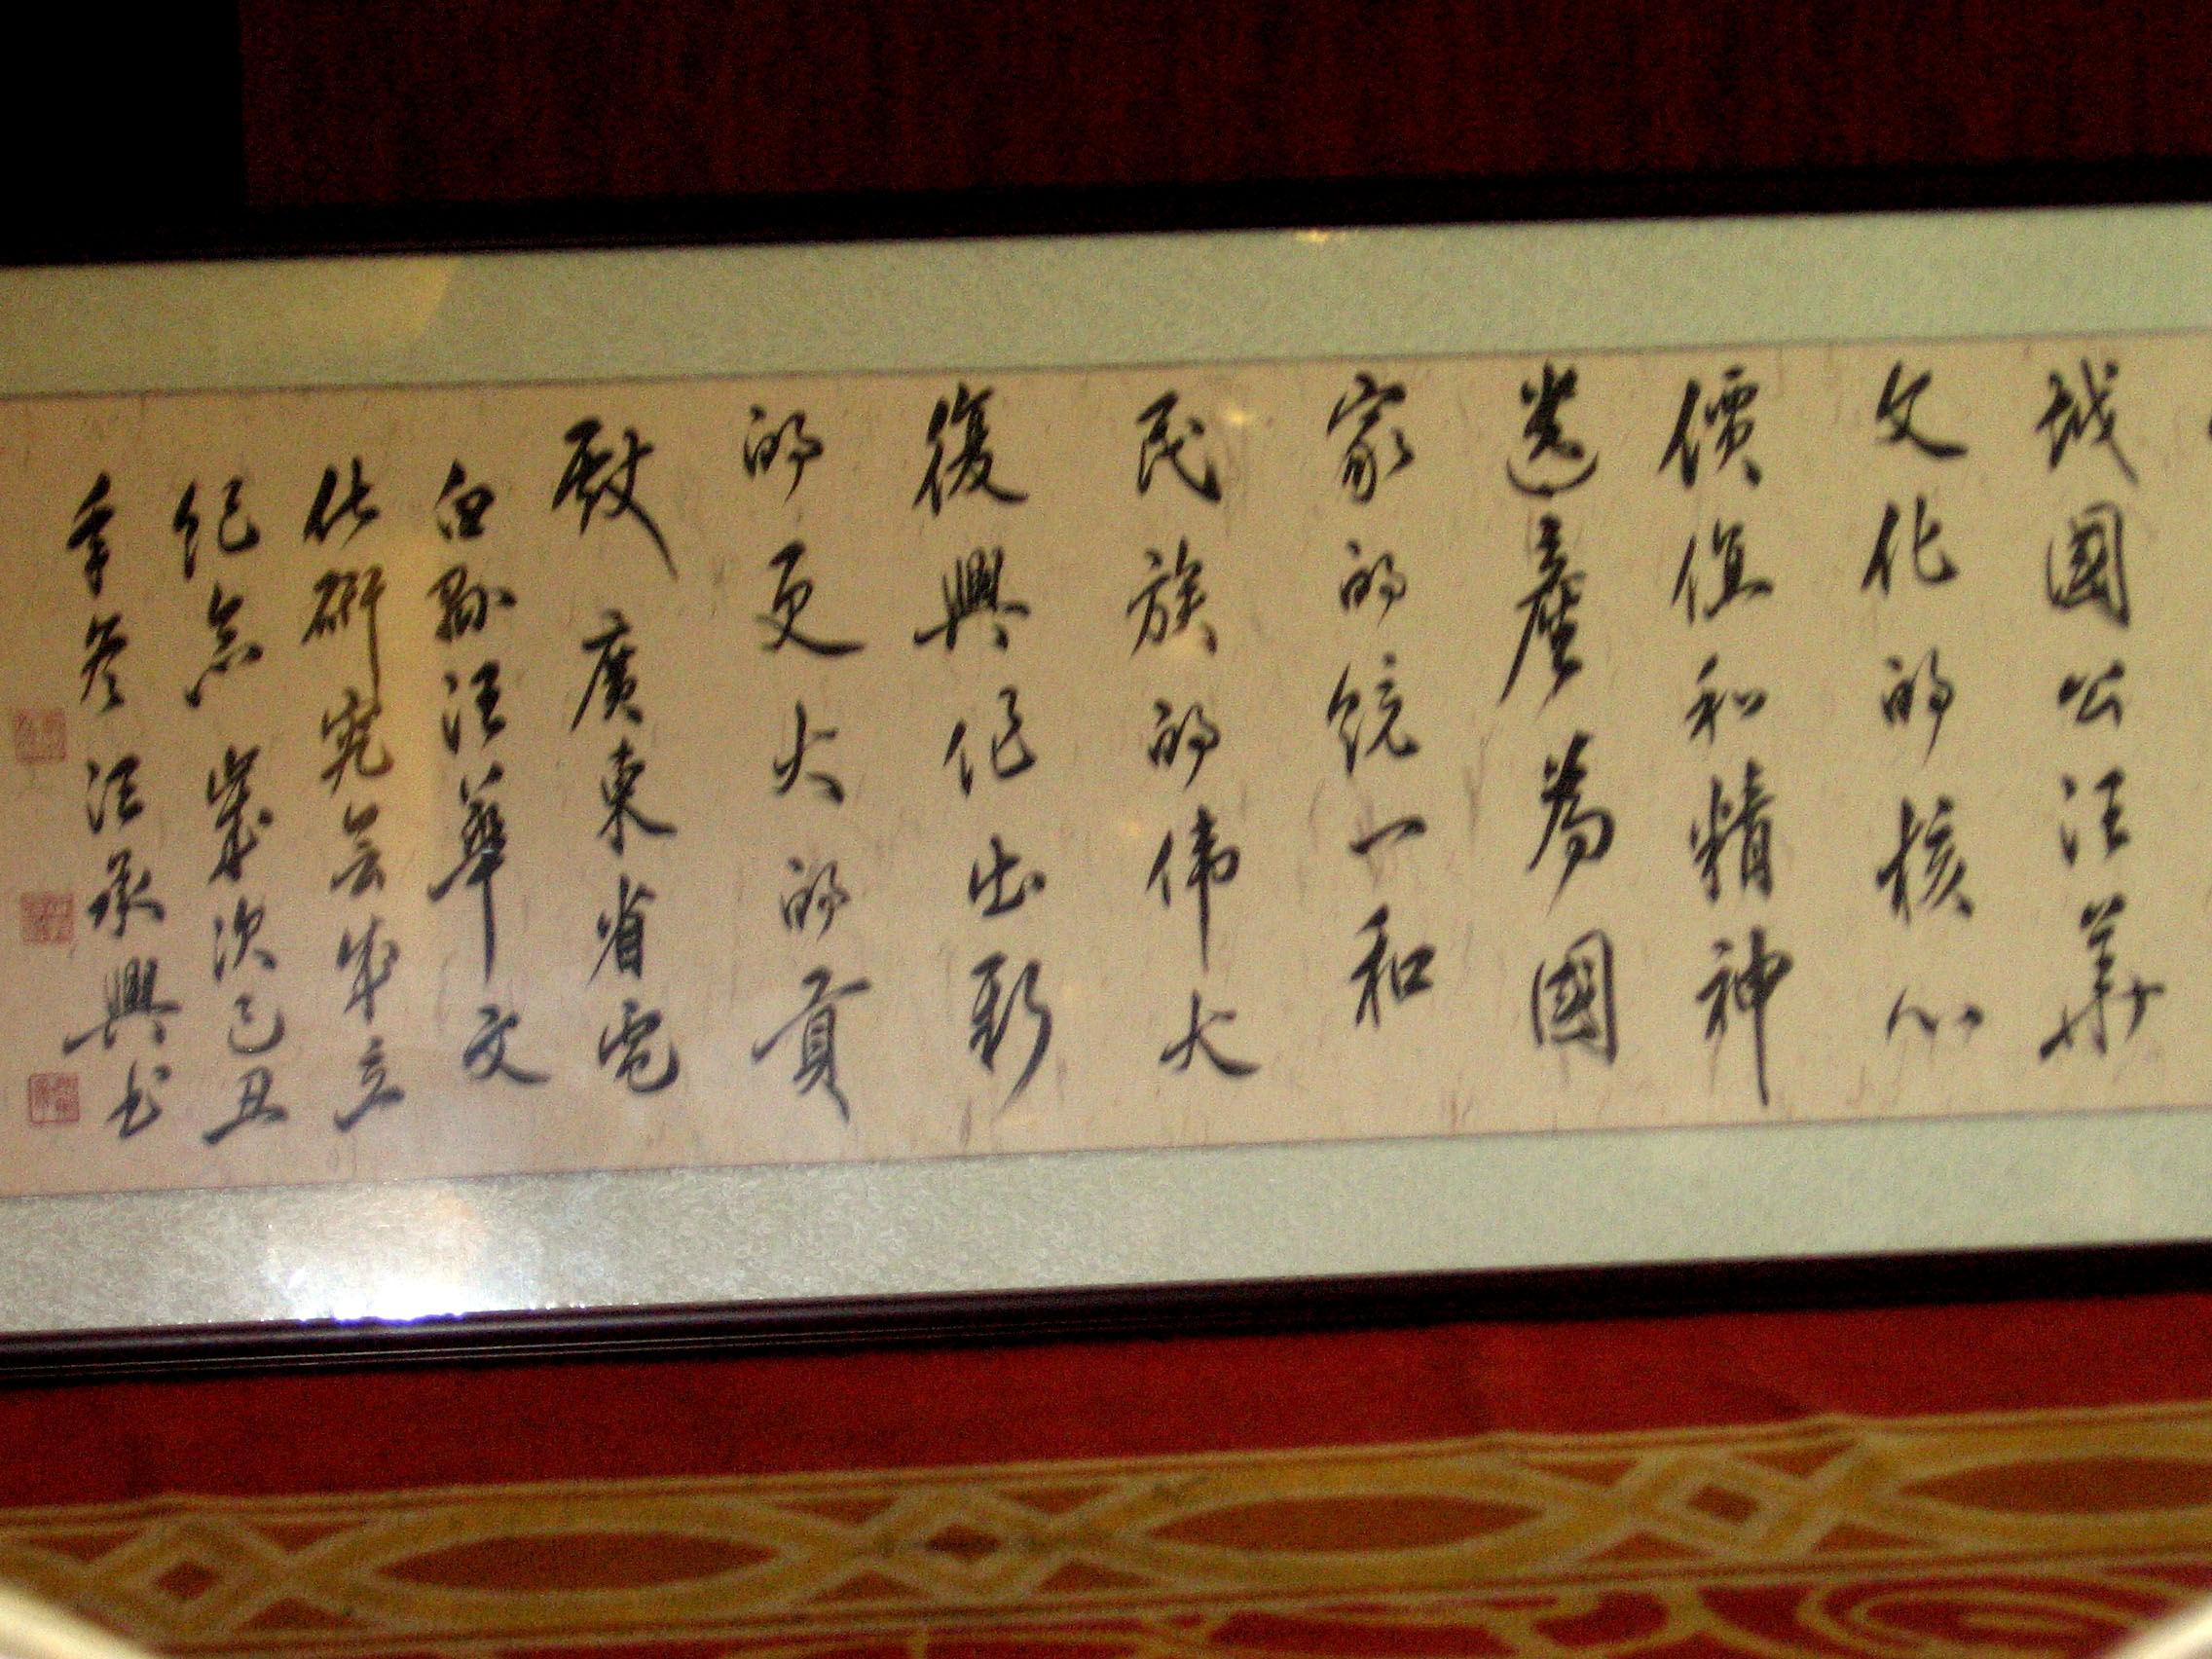 越國公汪華
文化的核心
價值和精神
遺產為國
家的统一和
民族的伟大
復興作出新
的更大的貢
獻 廣東省電
白縣汪華文
化研究会成立
纪念 歲次己丑
年冬 汪承興书